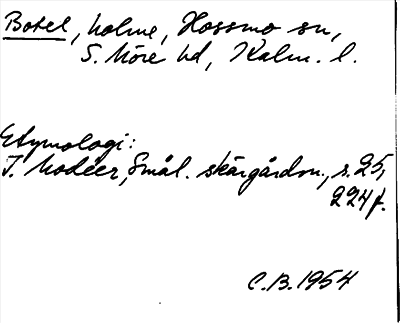 Botel, holme, Hossmo sn,
S. Möre hd, Kalm. l.
Etymologi:
I. Modéer, Smål. skärgårdsn., s. 25,
224f.
C.B. 1954